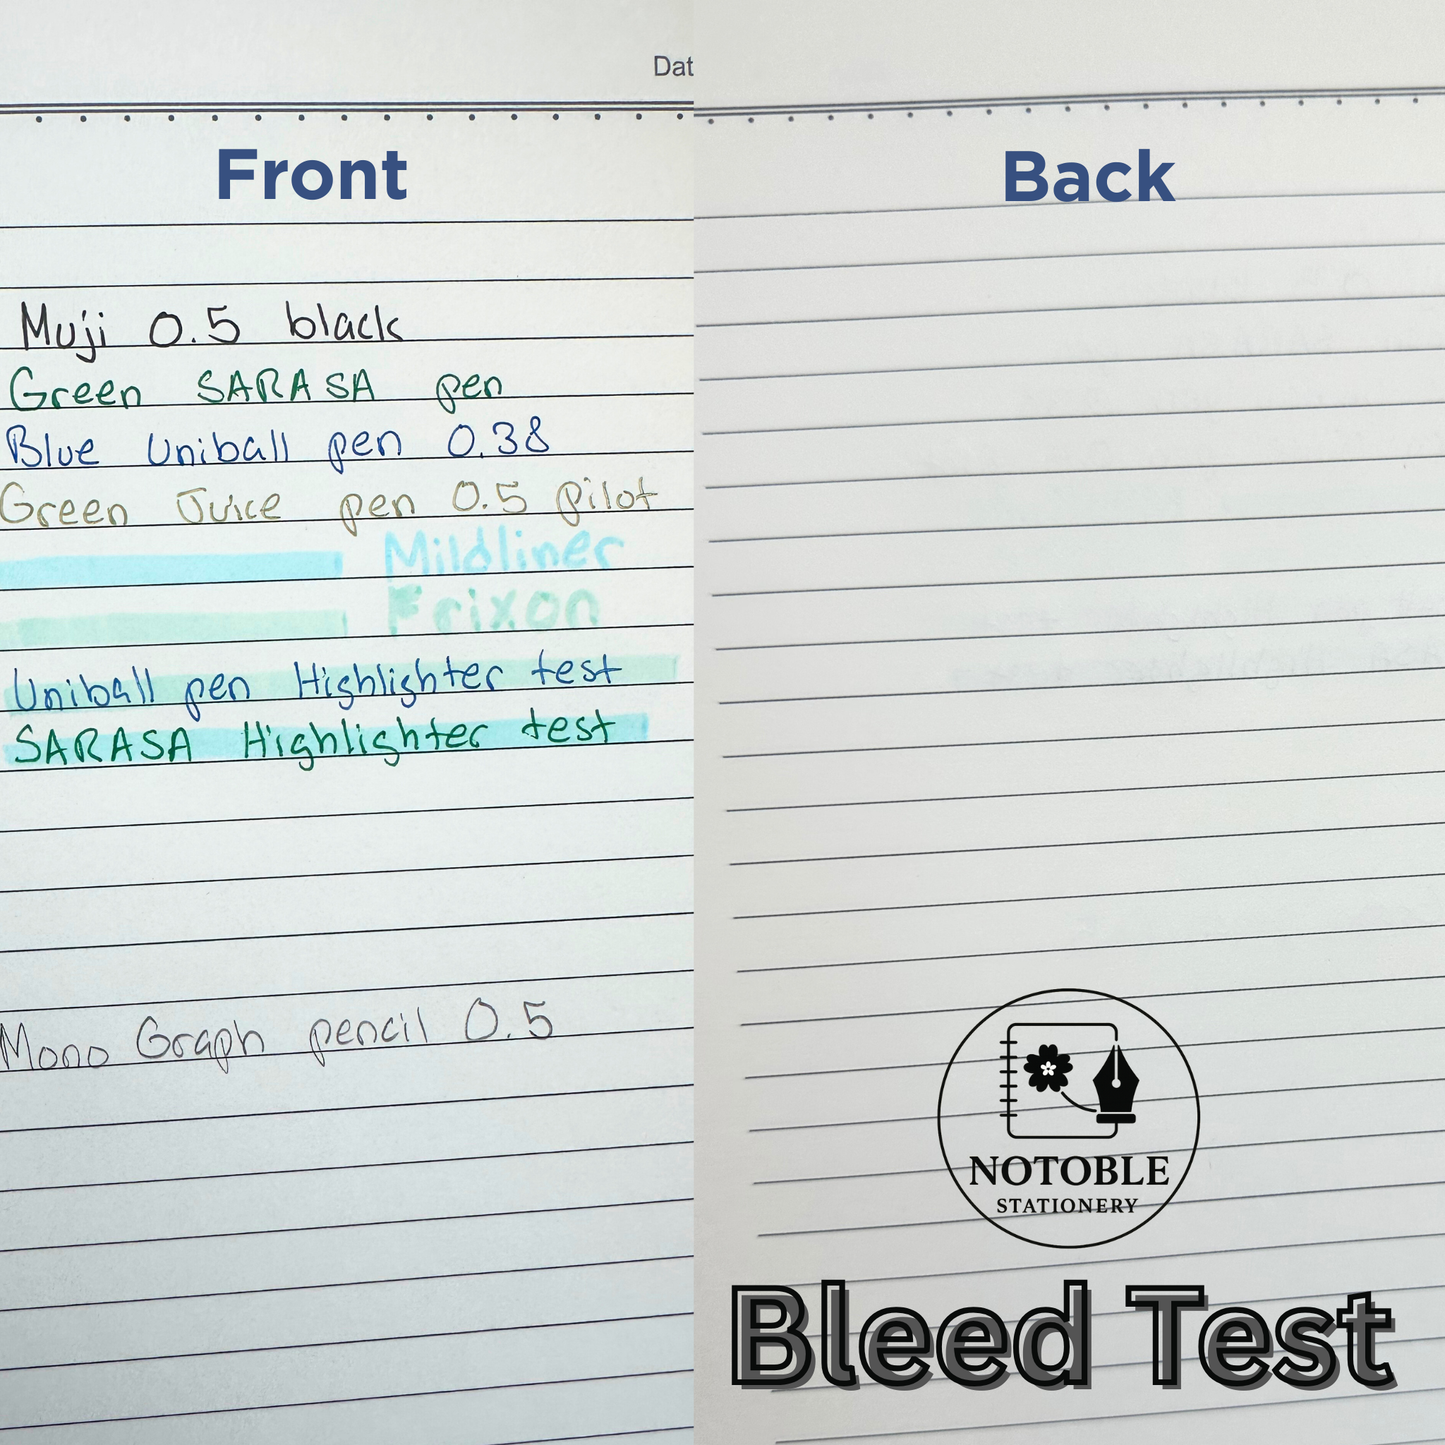 Dat
Front
Muji 0.5 black
Green SARASA pen
Blue Uniball pen 0.38
Green Juice pen 0.5 pilot
Mildliner
Frixon
Uniball pen Highlighter test
SARASA Highlighter test
Mono Graph pencil 0.5
Back
NOTOBLE
STATIONERY
Bleed Test